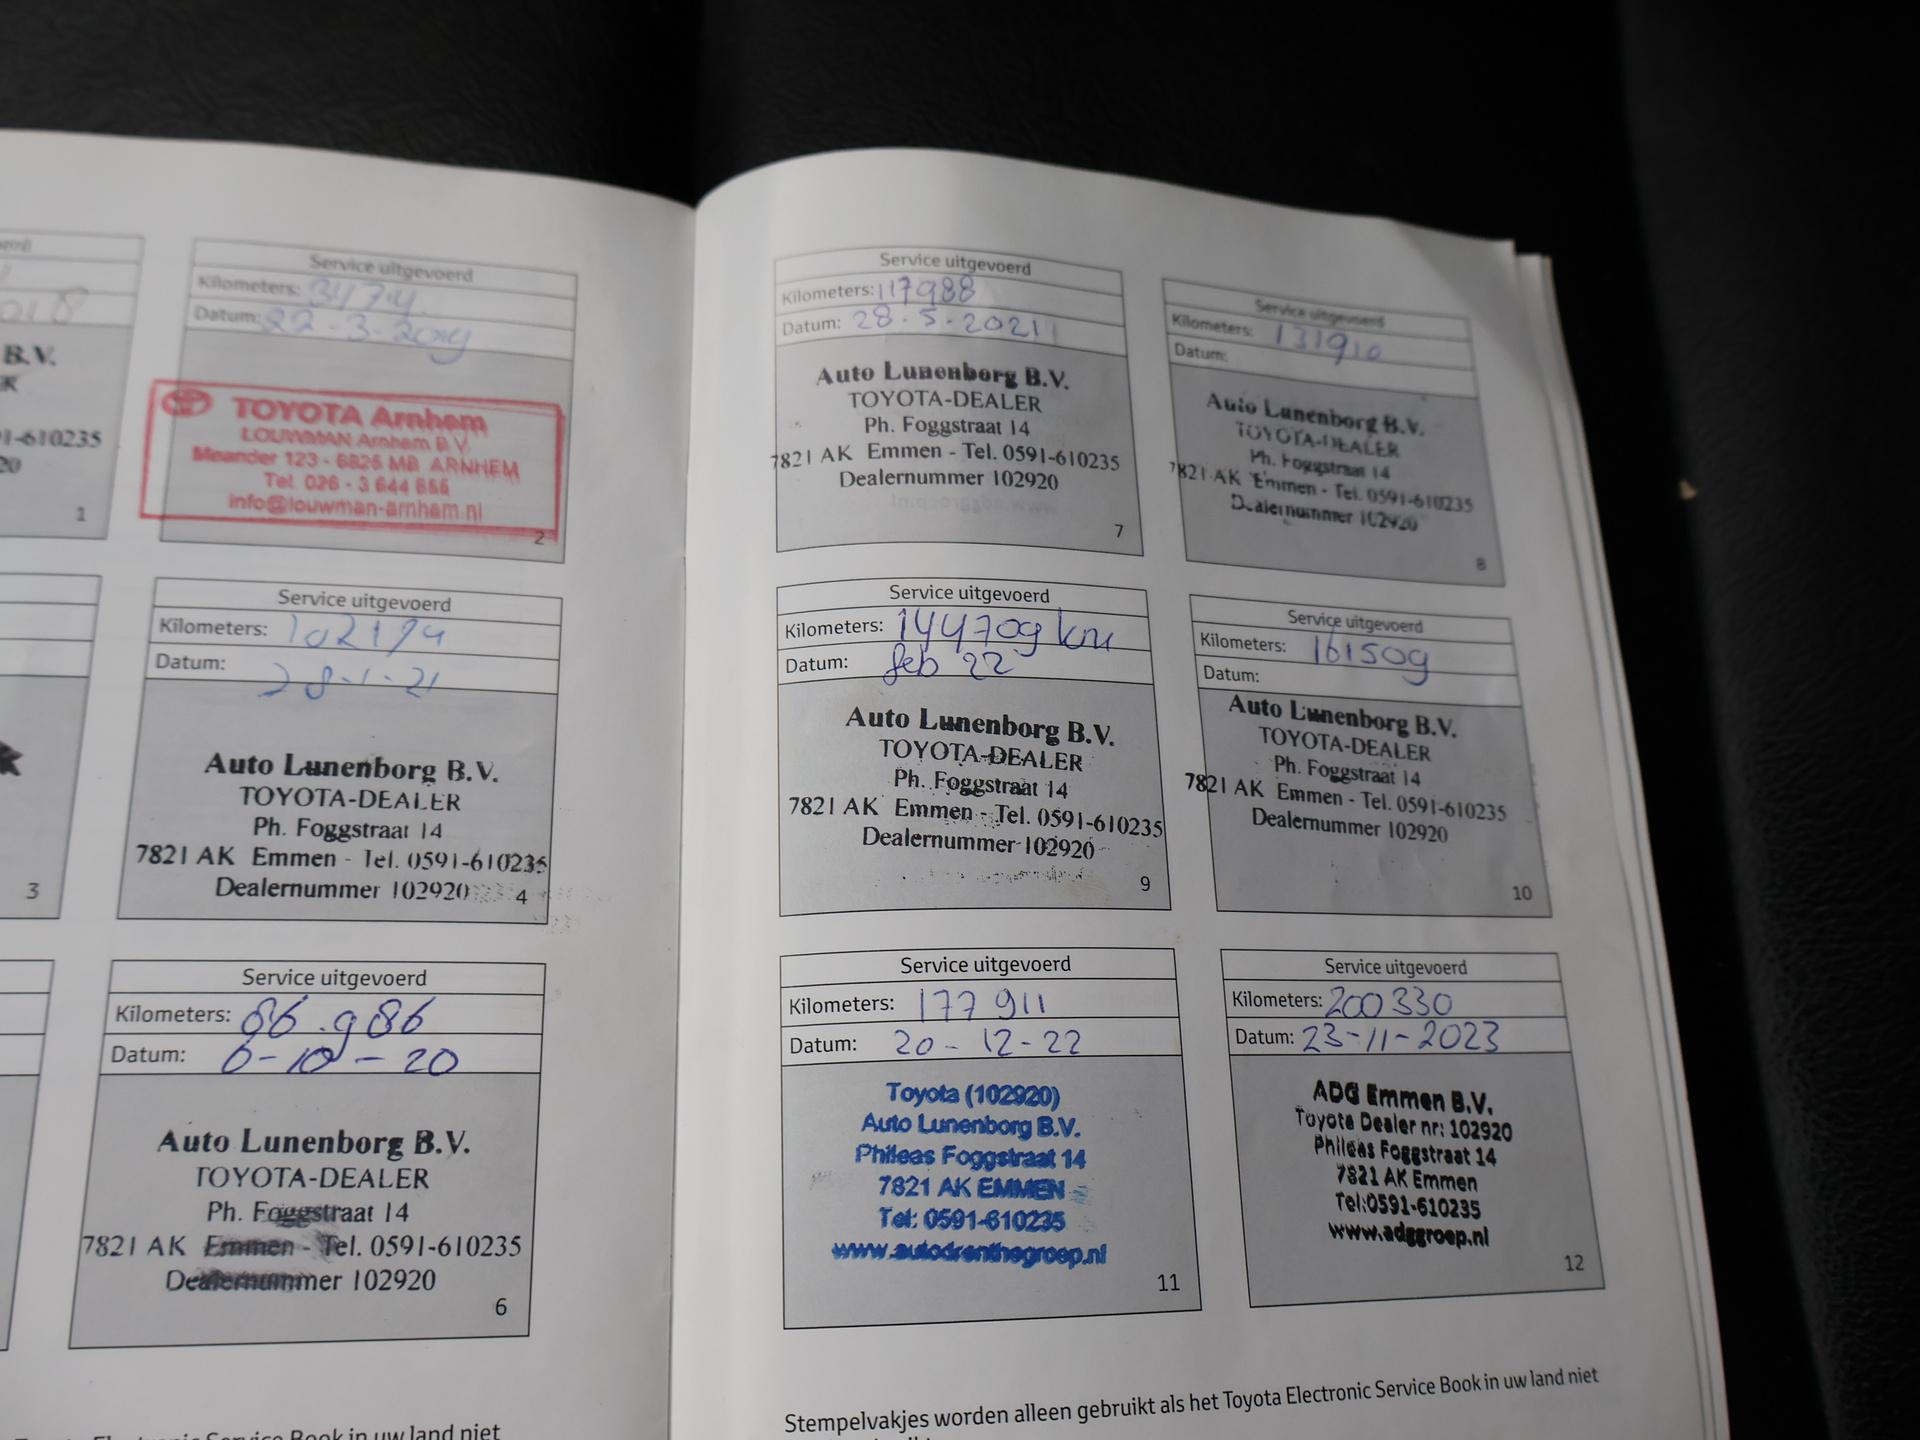 B.V.
1-610235
20
1
Service uitgevoerd
Kilometers: 3474
Datum: 22-3-2019
TOYOTA Arnhem
LOUWMAN Arnhem B.V.
Meander 123 - 6825 MB ARNHEM
Tel. 026 - 3 644 655
info@louwman-arnhem.nl
2
3
Service uitgevoerd
Kilometers: 102174
Datum: 28-1-21
Auto Lunenborg B.V.
TOYOTA-DEALER
Ph. Foggstraat 14
7821 AK Emmen - Tel. 0591-610235
Dealernummer 102920
4
Service uitgevoerd
Kilometers: 86.986
Datum: 6-10-20
Auto Lunenborg B.V.
TOYOTA-DEALER
Ph. Foggstraat 14
7821 AK Emmen - Tel. 0591-610235
Dealernummer 102920
6
Electronic Service Book in uw land niet
Service uitgevoerd
Kilometers: 117988
Datum: 28.5.2021
Auto Lunenborg B.V.
TOYOTA-DEALER
Ph. Foggstraat 14
7821 AK Emmen - Tel. 0591-610235
Dealernummer 102920
7
Service uitgevoerd
Kilometers: 131910
Datum:
Auto Lunenborg B.V.
TOYOTA-DEALER
Ph. Foggstraat 14
7821 AK Emmen - Tel. 0591-610235
Dealernummer 102920
8
Service uitgevoerd
Kilometers: 144709 km
Datum: feb 22
Auto Lunenborg B.V.
TOYOTA-DEALER
Ph. Foggstraat 14
7821 AK Emmen - Tel. 0591-610235
Dealernummer 102920
9
Service uitgevoerd
Kilometers: 161509
Datum:
Auto Lunenborg B.V.
TOYOTA-DEALER
Ph. Foggstraat 14
7821 AK Emmen - Tel. 0591-610235
Dealernummer 102920
10
Service uitgevoerd
Kilometers: 177911
Datum: 20-12-22
Toyota (102920)
Auto Lunenborg B.V.
Phileas Foggstraat 14
7821 AK EMMEN
Tel: 0591-610235
www.autodrenthegroep.nl
11
Service uitgevoerd
Kilometers: 200330
Datum: 23-11-2023
ADG Emmen B.V.
Toyota Dealer nr: 102920
Phileas Foggstraat 14
7821 AK Emmen
Tel:0591-610235
www.adggroep.nl
12
Stempelvakjes worden alleen gebruikt als het Toyota Electronic Service Book in uw land niet